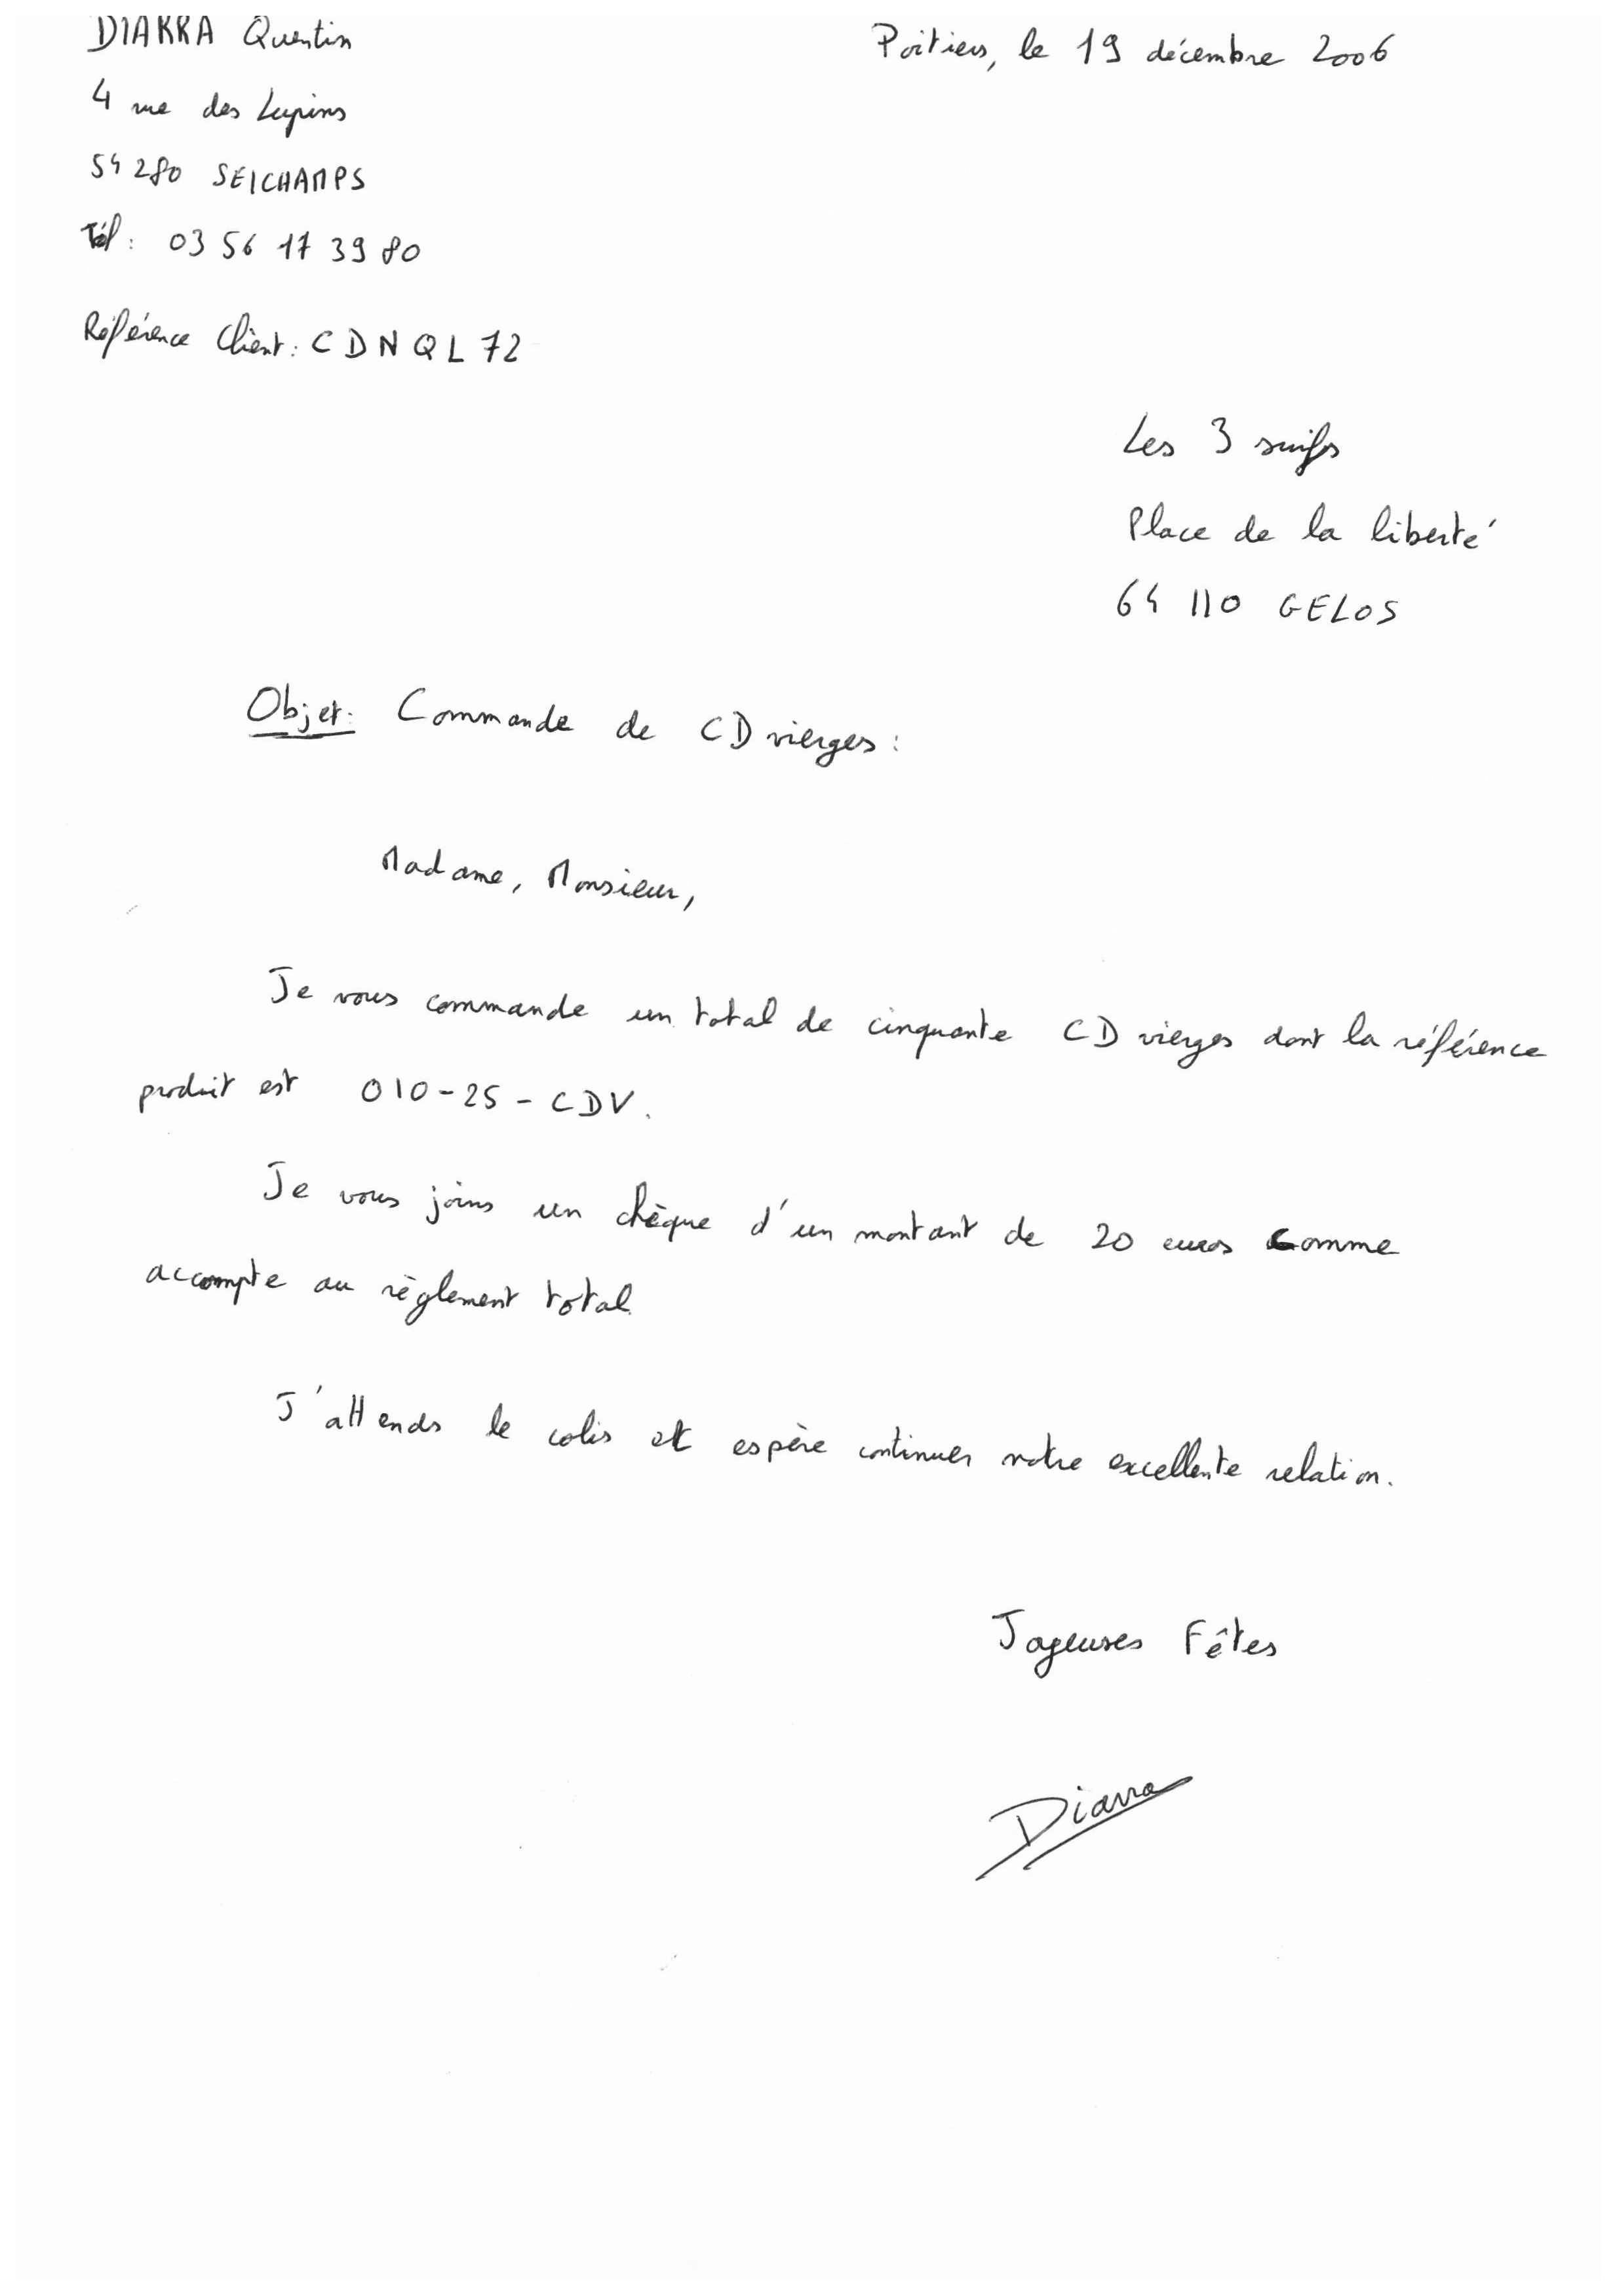 DIARRA Quentin
Poitiers, le 19 décembre 2006
4 rue des Lupins
54 280 SEICHAMPS
Tél : 03 56 17 39 80
Référence Client : CDNQL72
Les 3 suifs
Place de la liberté
64 110 GELOS
Objet : Commande de CD vierges :
Madame, Monsieur,
Je vous commande un total de cinquante CD vierges dont la référence
produit est 010-25-CDV.
Je vous joins un chèque d'un montant de 20 euros comme
accompte au règlement total.
J'attends le colis et espère continuer notre excellente relation.
Joyeuses Fêtes
Diarra